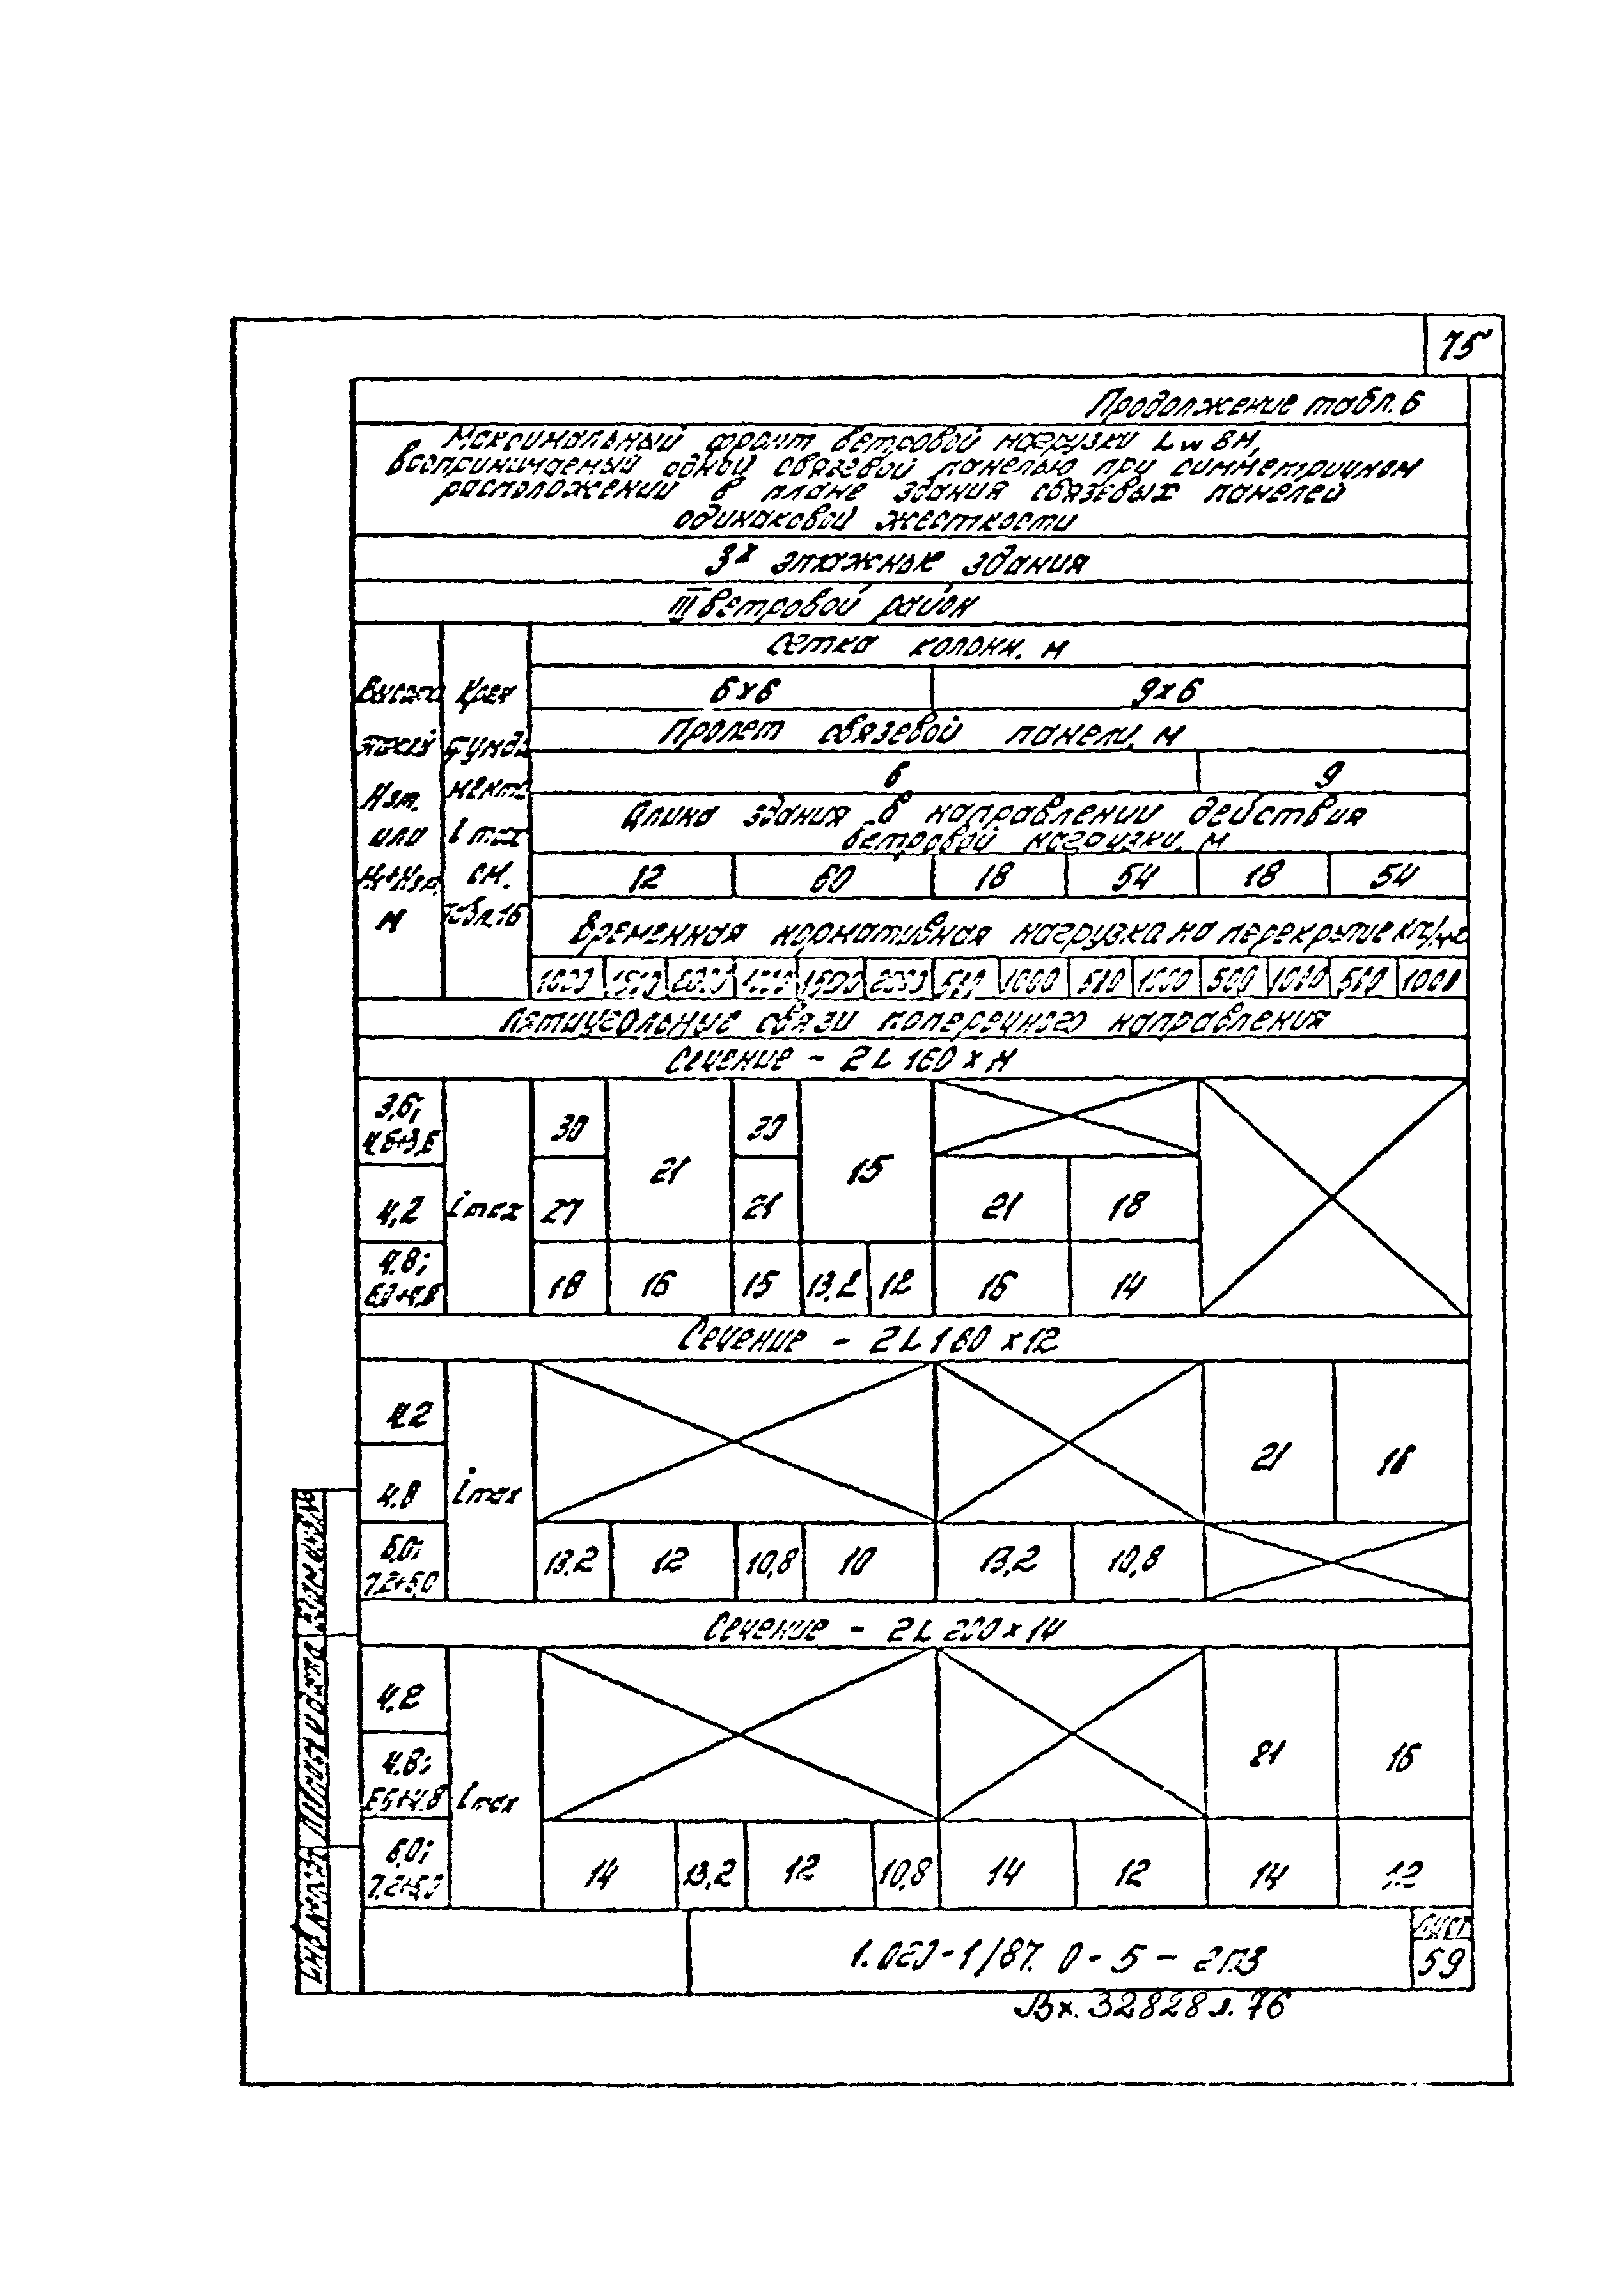 75
Продолжение табл. 6
Максимальный фронт ветровой нагрузки Lw в м,
воспринимаемый одной связевой панелью при симметричном
расположении в плане здания связевых панелей
одинаковой жесткости
3х этажные здания
III ветровой район
Сетка колонн, м
Высота Крен
6х6 9х6
Пролет связевой панели, м
этажей фунда
6 9
Нэт. мента
Длина здания в направлении действия
или imax
ветровой нагрузки, м
см. 12 60 18 54 18 54
м табл. 16
Временная нормативная нагрузка на перекрытие кгс/м2
1000 1500 2000 1000 1500 2000 500 1000 500 1000 500 1000 500 1000
Пятиугольные связи поперечного направления
Сечение - 2L 160 х
3,6; 30 30
4,8+3,6
21 15
4,2 imax 27 21 21 18
4,8; 18 16 15 13,2 12 16 14
6,0+4,8
Сечение - 2L 180 х 12
4,2
21 16
4,8 imax
6,0; 13,2 12 10,8 10 13,2 10,8
7,2+6,0
Сечение - 2L 200 х 14
4,2
4,8; 21 16
+4,8 imax
6,0; 14 13,2 12 10,8 14 12 14 12
7,2+6,0
1.020-1/87. 0-5-2ПЗ
Лист
59
Вх. 32828 л. 76
Инв. № подл. Подпись и дата Взам. инв. №